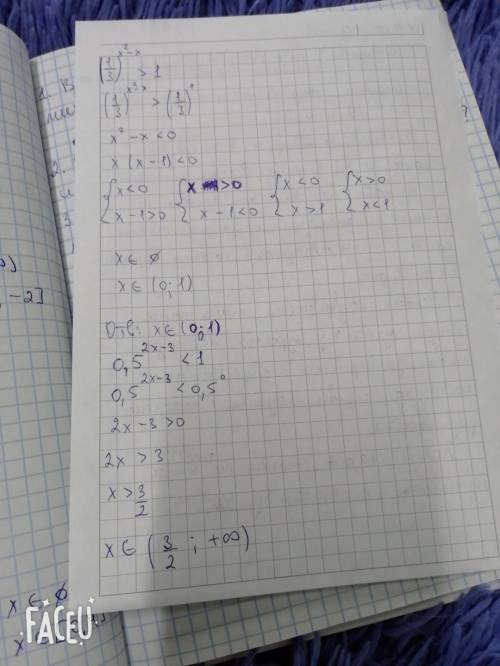 (1/3)^(x²-x) > 1
(1/3)^(x²-x) > (1/3)⁰
x² - x < 0
x (x - 1) < 0
{x < 0 {x > 0 {x < 0 {x > 0
x - 1 > 0 x - 1 < 0 x > 1 x < 1
x ∈ ∅
x ∈ (0; 1)
Отв: x ∈ (0; 1)
0,5^(2x-3) < 1
0,5^(2x-3) < 0,5⁰
2x - 3 > 0
2x > 3
x > 3/2
x ∈ (3/2 ; +∞)
, -2]
x ∈ ∅
FACEU